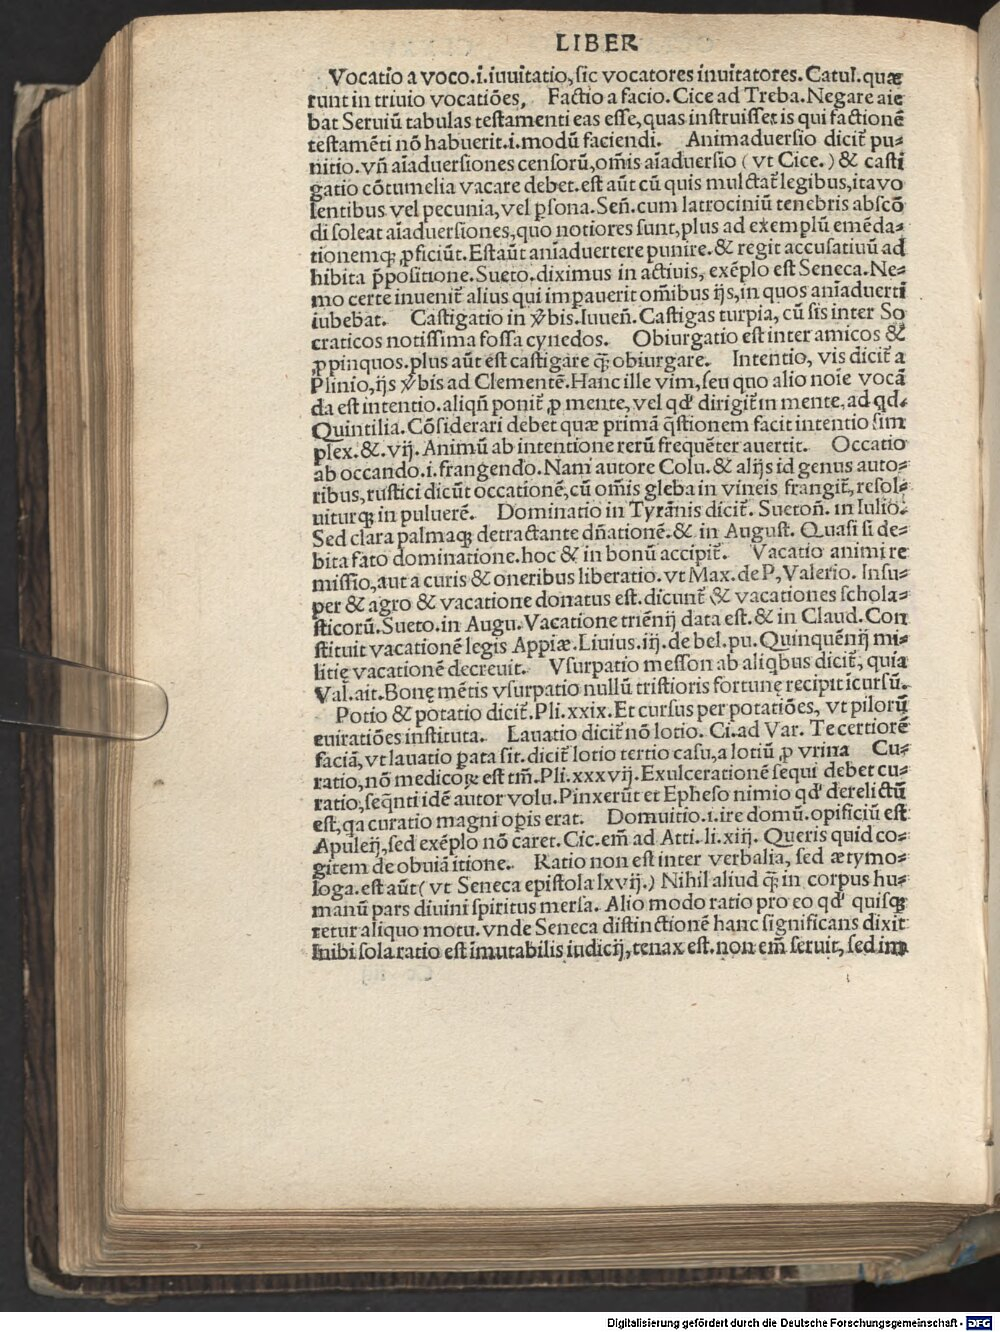 LIBER
Vocatio a voco.i.iuuitatio,sic vocatores inuitatores.Catul.quæ
runt in triuio vocatiões, Factio a facio.Cice ad Treba.Negare aie
bat Seruiũ tabulas testamenti eas esse,quas instruisset is qui factionẽ
testamẽti nõ habuerit.i.modũ faciendi. Animaduersio dicit̃ pu⸗
nitio.vñ aĩaduersiones censorũ,om̃is aĩaduersio (vt Cice.) & casti
gatio cõtumelia vacare debet.est aũt cũ quis mulctat̃ legibus,ita vo
lentibus vel pecunia,vel p̱sona.Señ.cum latrociniũ tenebris abscõ
di soleat aĩaduersiones,quo notiores sunt,plus ad exemplũ emẽda⸗
tionemqꝫ ꝓficiũt.Est aũt aniaduertere punire.& regit accusatiuũ ad
hibita p̃positione.Sueto.diximus in actiuis, exẽplo est Seneca.Ne⸗
mo certe inuenit̃ alius qui impauerit om̃ibus ijs,in quos aniaduerti
iubebat. Castigatio in v̉bis.Iuueñ.Castigas turpia, cũ sis inter So
craticos notissima fossa cynedos. Obiurgatio est inter amicos &
ꝓpinquos.plus aũt est castigare q̃ꝫ obiurgare. Intentio, vis dicit̃ a
Plinio,ijs v̉bis ad Clementẽ.Hanc ille vim,seu quo alio noie vocã
da est intentio.aliqñ ponit̃ ꝓ mente, vel qd' dirigit̃ in mente, ad qd.
Quintilia.Cõsiderari debet quæ primã q̃stionem facit intentio sim
plex.&.vij.Animũ ab intentione rerũ frequẽter auertit. Occatio
ab occando.i.frangendo.Nam autore Colu.& alijs id genus auto⸗
ribus,rustici dicũt occationẽ,cũ om̃is gleba in vineis frangit̃,resol⸗
uiturqꝫ in puluerẽ. Dominatio in Tyrãnis dicit̃. Suetoñ. in Iulio.
Sed clara palmaqꝫ detractante dñationẽ.& in August. Quasi si de⸗
bita fato dominatione.hoc & in bonũ accipit̃. Vacatio animi re
missio,aut a curis & oneribus liberatio.vt Max.de P,Valerio. Insu⸗
per & agro & vacatione donatus est.dicunt̃ & vacationes schola⸗
sticorũ.Sueto.in Augu.Vacatione triẽnij data est.& in Claud.Con
stituit vacationẽ legis Appiæ.Liuius.iij.de bel.pu.Quinquẽnij mi⸗
litię vacationẽ decreuit. Vsurpatio messon ab aliqbus dicit̃, quia
Val.ait.Bonę mẽtis vsurpatio nullũ tristioris fortunę recipit ĩcursũ.
Potio & potatio dicit̃.Pli.xxix.Et cursus per potatiões, vt pilorũ
euiratiões instituta. Lauatio dicit̃ nõ lotio. Ci.ad Var. Te certiorẽ
faciã,vt lauatio p̱ata sit.dicit̃ lotio tertio casu,a lotiũ ꝓ vrina Cu⸗
ratio,nõ medicoꝝ est tm̃.Pli.xxxvij.Exulcerationẽ sequi debet cu⸗
ratio,seq̃nti idẽ autor volu.Pinxerũt et Epheso nimio qd' derelictũ
est,qa curatio magni opis erat. Domuitio.i.ire domũ.opificiũ est
Apuleij,sed exẽplo nõ caret.Cic.em̃ ad Atti.li.xiij. Queris quid co⸗
gitem de obuiã itione. Ratio non est inter verbalia, sed ætymo⸗
loga.est aũt (vt Seneca epistola lxvij.) Nihil aliud q̃ꝫ in corpus hu⸗
manũ pars diuini spiritus mersa. Alio modo ratio pro eo qd' quisqꝫ
retur aliquo motu.vnde Seneca distinctionẽ hanc significans dixit
Inibi sola ratio est ĩmutabilis iudicij,tenax est.non em̃ seruit, sed im
Digitalisierung gefördert durch die Deutsche Forschungsgemeinschaft - DFG